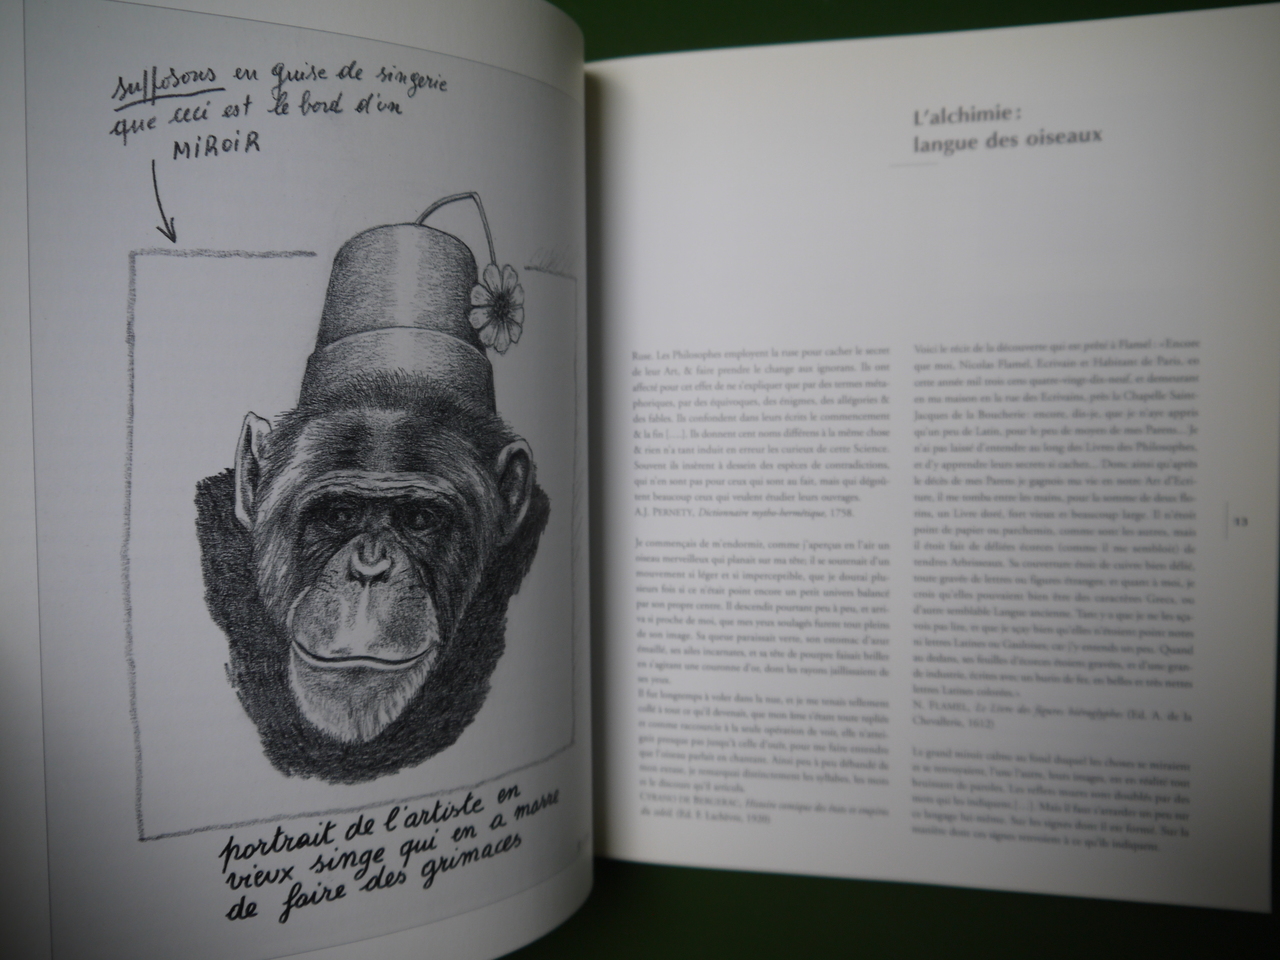 supposons en guise de singerie
que ceci est le bord d'un
MiROiR
portrait de l'artiste en
vieux singe qui en a marre
de faire des grimaces
L'alchimie :
langue des oiseaux
Ruse. Les Philosophes employent la ruse pour cacher le secret
de leur Art, & faire prendre le change aux ignorans. Ils ont
affecté pour cet effet de ne s'expliquer que par des termes méta-
phoriques, par des équivoques, des énigmes, des allégories &
des fables. Ils confondent dans leurs écrits le commencement
& la fin [....]. Ils donnent cent noms différens à la même chose
& rien n'a tant induit en erreur les curieux de cette Science.
Souvent ils insèrent à dessein des espèces de contradictions,
qui n'en sont pas pour ceux qui sont au fait, mais qui dégoû-
tent beaucoup ceux qui veulent étudier leurs ouvrages.
A.J. PERNETY, Dictionnaire mytho-hermétique, 1758.
Je commençais de m'endormir, comme j'aperçus en l'air un
oiseau merveilleux qui planait sur ma tête; il se soutenait d'un
mouvement si léger et si imperceptible, que je doutai plu-
sieurs fois si ce n'était point encore un petit univers balancé
par son propre centre. Il descendit pourtant peu à peu, et arri-
va si proche de moi, que mes yeux soulagés furent tout pleins
de son image. Sa queue paraissait verte, son estomac d'azur
émaillé, ses ailes incarnates, et sa tête de pourpre faisait briller
en s'agitant une couronne d'or, dont les rayons jaillissaient de
ses yeux.
Il fut longtemps à voler dans la nue, et je me tenais tellement
collé à tout ce qu'il devenait, que mon âme s'étant toute repliée
et comme raccourcie à la seule opération de voir, elle n'attei-
gnit presque pas jusqu'à celle d'ouïr, pour me faire entendre
que l'oiseau parlait en chantant. Ainsi peu à peu débandé de
mon extase, je remarquai distinctement les syllabes, les mots
et le discours qu'il articula.
CYRANO DE BERGERAC, Histoire comique des états et empires
du soleil (Ed. F. Lachèvre, 1920)
Voici le récit de la découverte qui est prêté à Flamel : «Encore
que moi, Nicolas Flamel, Ecrivain et Habitant de Paris, en
cette année mil trois cens quatre-vingt-dix-neuf, et demeurant
en ma maison en la rue des Ecrivains, près la Chapelle Saint-
Jacques de la Boucherie: encore, dis-je, que je n'aye appris
qu'un peu de Latin, pour le peu de moyens de mes Parens... Je
n'ai pas laissé d'entendre au long des Livres des Philosophes,
et d'y apprendre leurs secrets si cachez... Donc ainsi qu'après
le décès de mes Parens je gagnois ma vie en notre Art d'Ecri-
ture, il me tomba entre les mains, pour la somme de deux flo-
rins, un Livre doré, fort vieux et beaucoup large. Il n'était
point de papier ou parchemin, comme sont les autres, mais
il étoit fait de déliées écorces (comme il me sembloit) de
tendres Arbrisseaux. Sa couverture étoit de cuivre bien délié,
toute gravée de lettres ou figures étranges; et quant à moi, je
crois qu'elles pouvoient bien être des caractères Grecs, ou
d'autre semblable Langue ancienne. Tant y a que je ne les sça-
vois pas lire, et que je sçay bien qu'elles n'étoient point notes
ni lettres Latines ou Gauloises, car j'y entends un peu. Quant
au dedans, ses feuilles d'écorces étoient gravées, et d'une gran-
de industrie, écrites avec un burin de fer, en belles et très nettes
lettres Latines colorées.»
N. FLAMEL, Le Livre des figures hiéroglyphes (Ed. A. de la
Chevallerie, 1612)
Le grand miroir calme au fond duquel les choses se miraient
et se renvoyaient, l'une l'autre, leurs images, est en réalité tout
bruissant de paroles. Les reflets muets sont doublés par des
mots qui les indiquent [...]. Mais il faut s'attarder un peu sur
ce langage lui-même. Sur les signes dont il est formé. Sur la
manière dont ces signes renvoient à ce qu'ils indiquent.
13